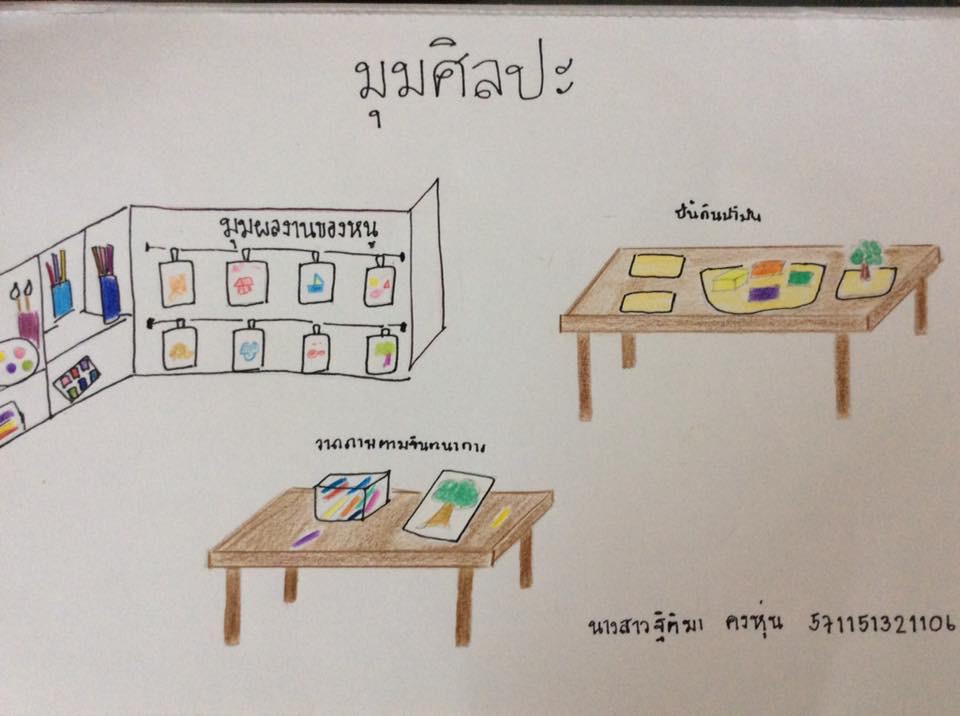 มุมศิลปะ
มุมผลงานของหนู
ปั้นดินน้ำมัน
วาดภาพตามจินตนาการ
นางสาวฐิติมา ครหุ่น 571151321106